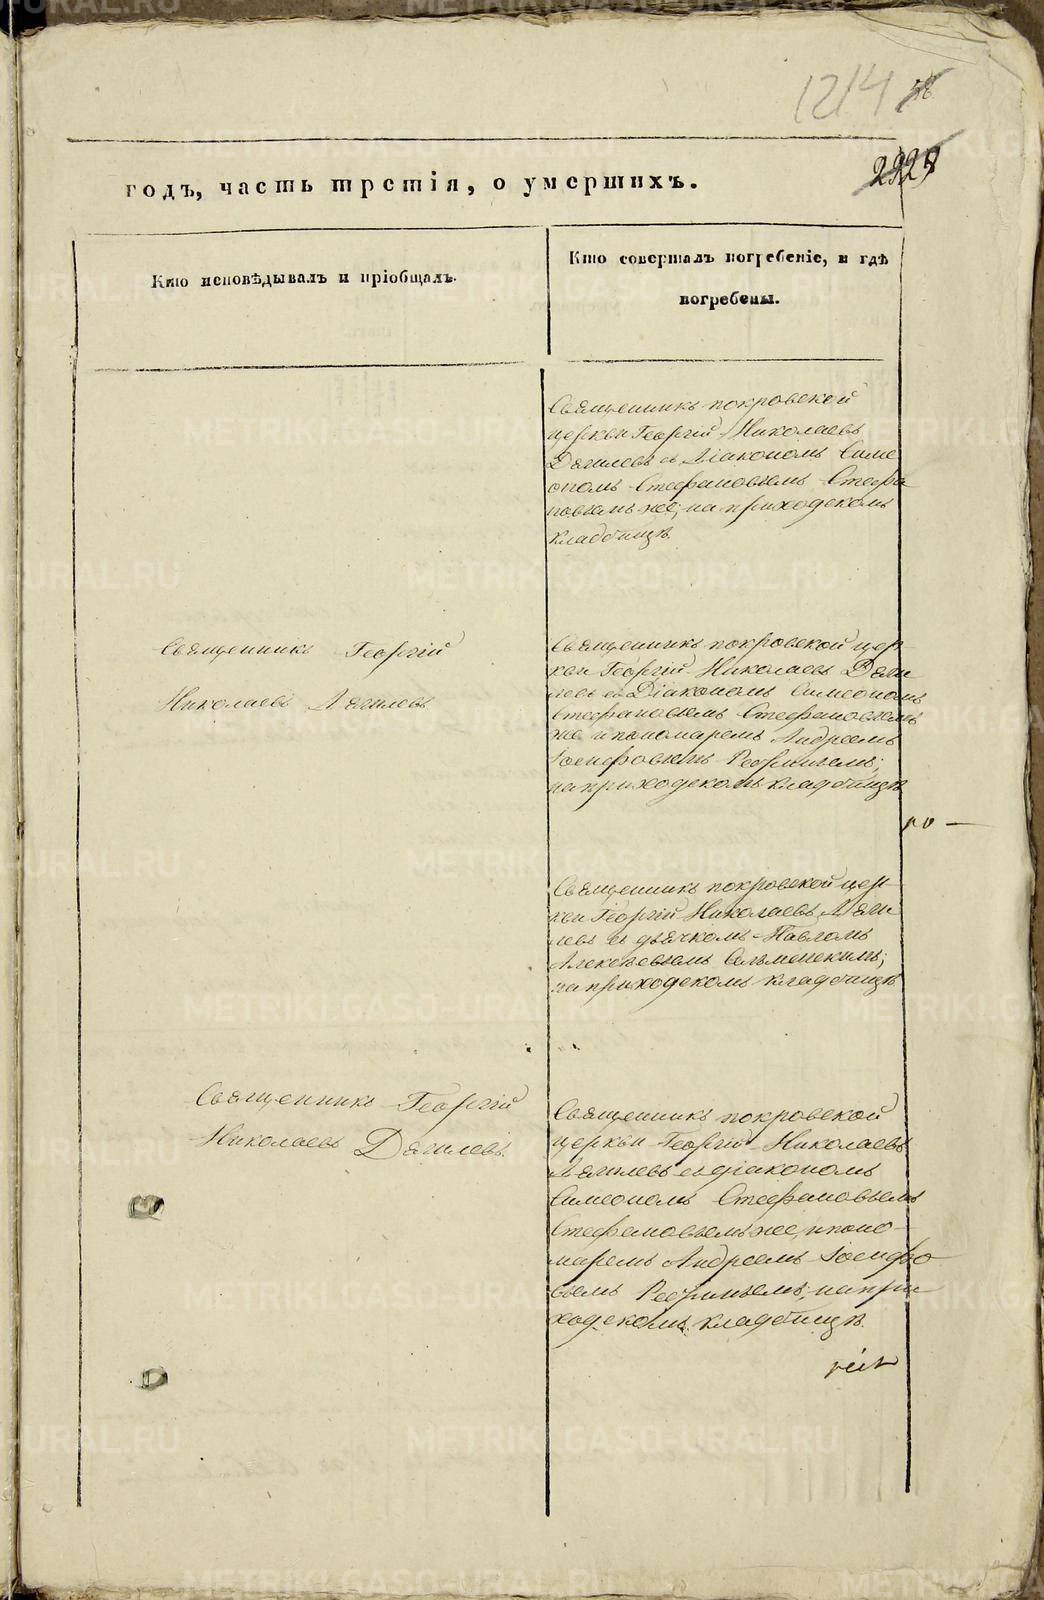 1214
годъ, часть третія, о умершихъ.
Кто исповѣдывалъ и пріобщалъ.
Кто совершалъ погребеніе, и гдѣ
погребены.
Священникъ покровской
церкви Георгій Николаевъ
Дягилевъ съ Діакономъ Симе
ономъ Стефановымъ Стефа
новымъ же; на приходскомъ
кладбищѣ.
Священникъ Георгій
Николаевъ Дягилевъ
Священникъ покровской цер-
кви Георгій Николаевъ Дяги
левъ съ Діакономъ Симеономъ
Стефановымъ Стефановымъ
же и пономаремъ Андреемъ
Іосифовымъ
на приходскомъ кладбищѣ
Священникъ покровской цер-
кви Георгій Николаевъ Дяги
левъ съ дьячкомъ Павломъ
Алексѣевымъ
на приходскомъ кладбищѣ
Священникъ Георгій
Николаевъ Дягилевъ
Священникъ покровской
церкви Георгій Николаевъ
Дягилевъ съ діакономъ
Симеономъ Стефановымъ
Стефановымъ же, и поно-
маремъ Андреемъ Іосифо
вымъ на при
ходскомъ кладбищѣ.
METRIKI.GASO-URAL.RU